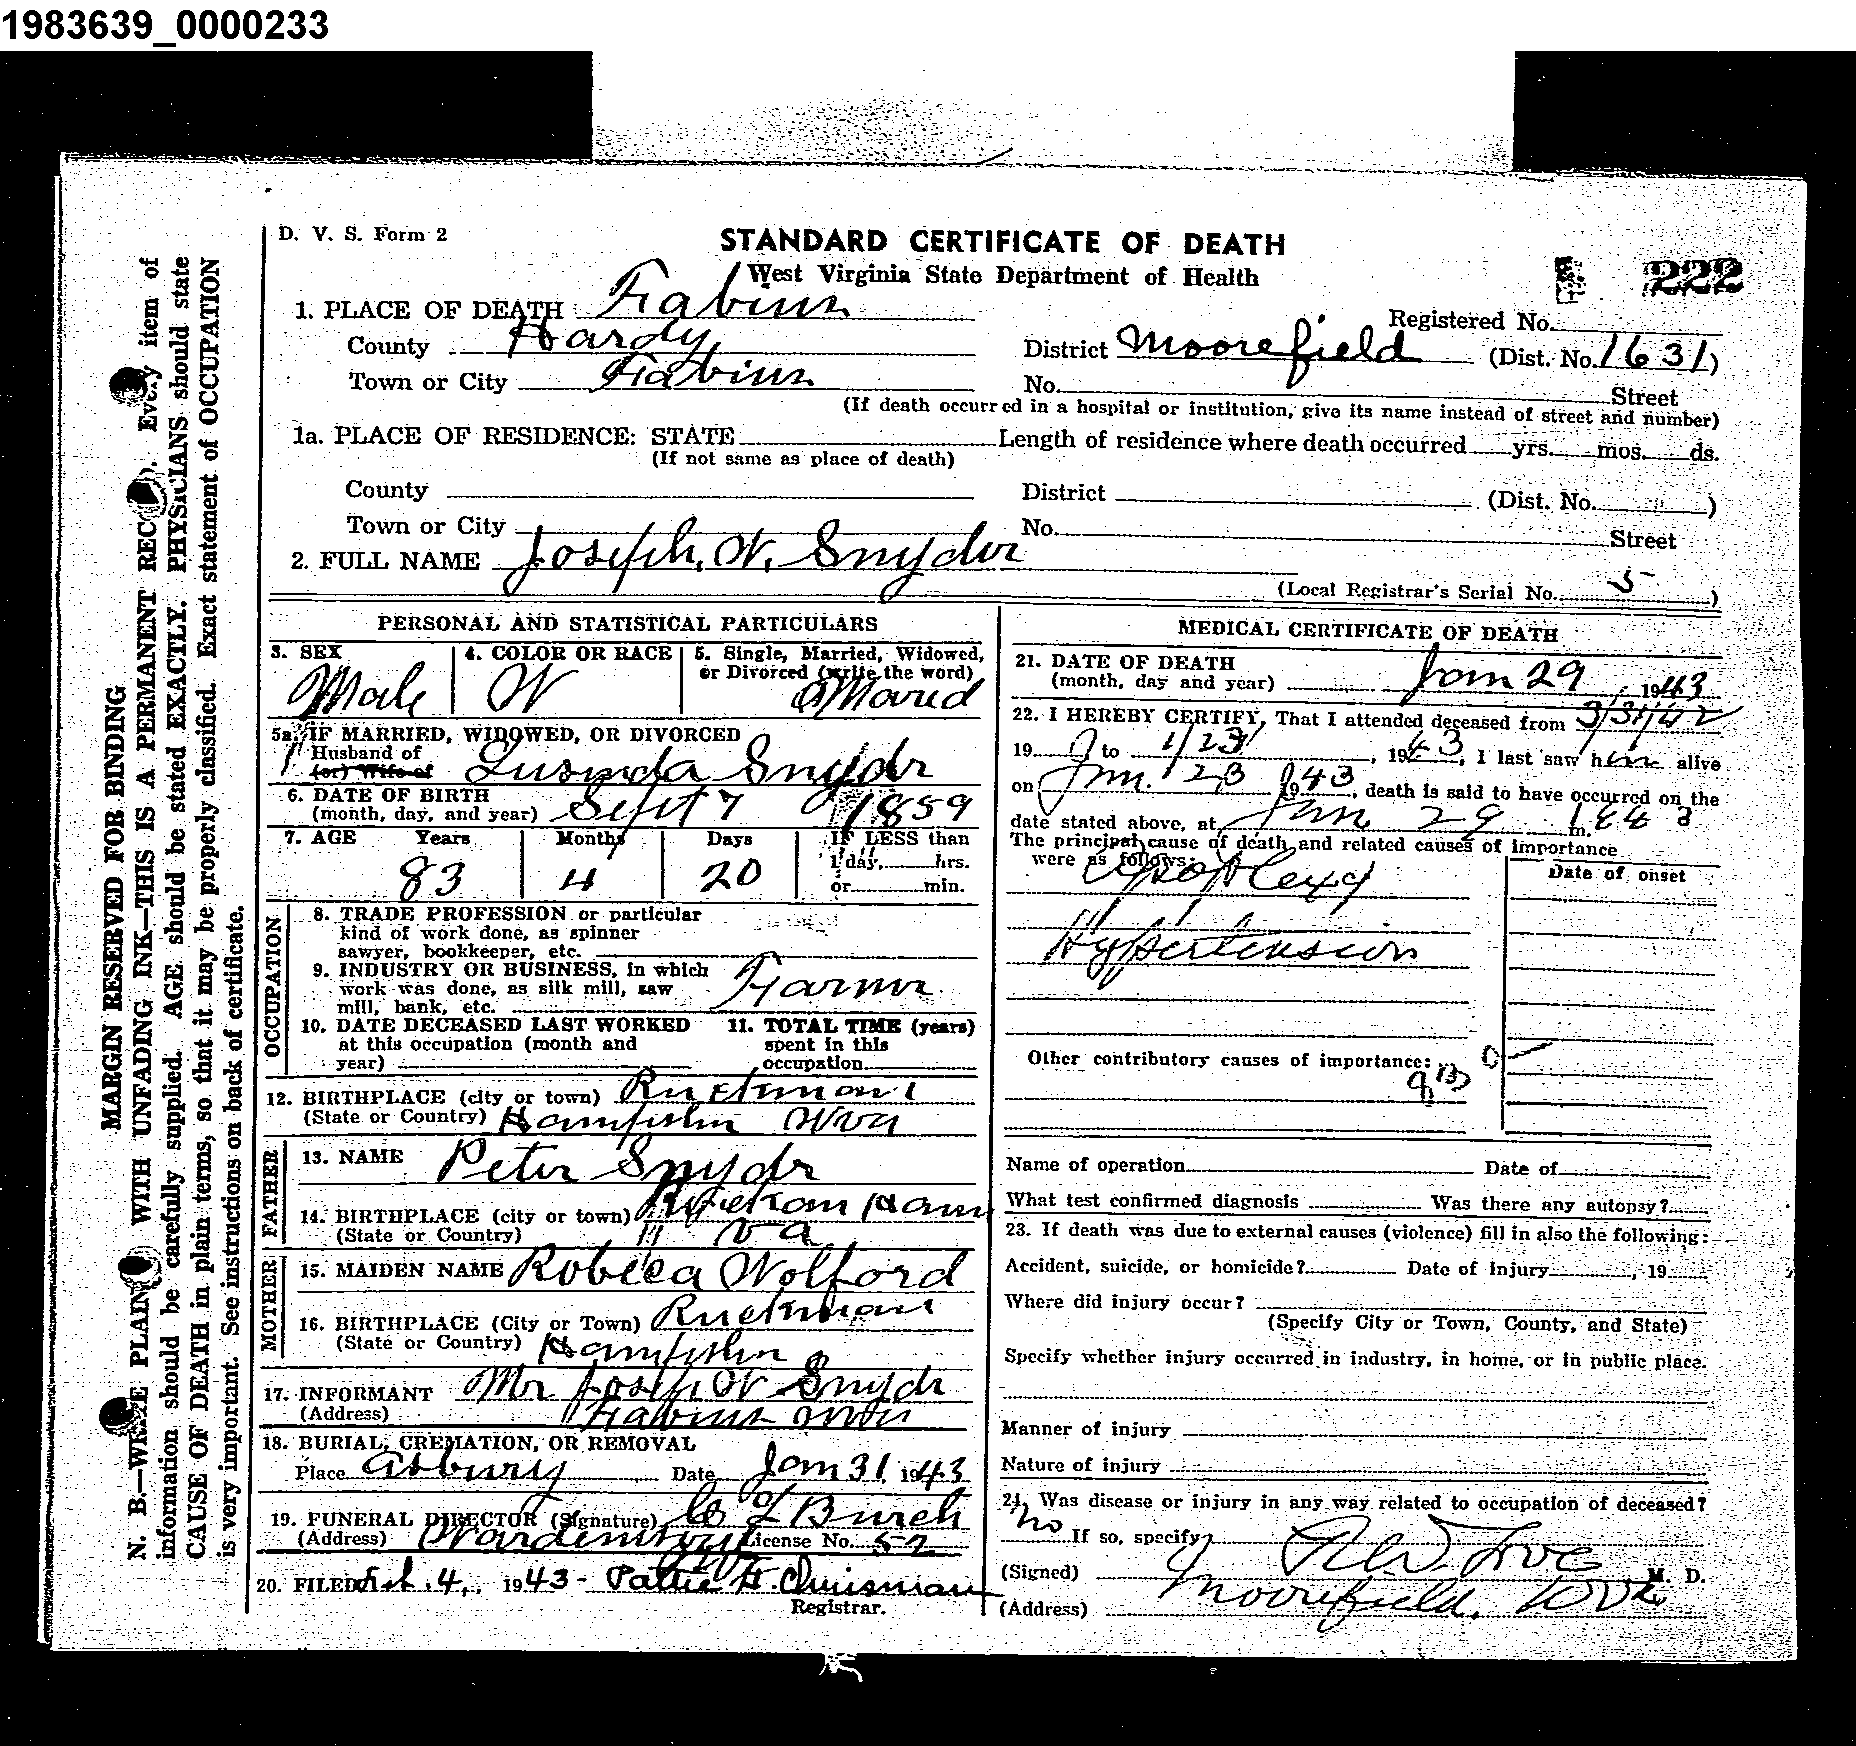 1983639_0000233
D. V. S. Form 2
STANDARD CERTIFICATE OF DEATH
West Virginia State Department of Health
222
1. PLACE OF DEATH Fabius
Registered No.
County Hardy
District Moorefield (Dist. No. 1631)
Town or City Fabius
No. Street
(If death occurred in a hospital or institution, give its name instead of street and number)
1a. PLACE OF RESIDENCE: STATE Length of residence where death occurred yrs. mos. ds.
(If not same as place of death)
County District (Dist. No. )
Town or City No. Street
2. FULL NAME Joseph. W. Snyder
(Local Registrar's Serial No. 5 )
PERSONAL AND STATISTICAL PARTICULARS
3. SEX Male
4. COLOR OR RACE W
5. Single, Married, Widowed, or Divorced (write the word) Mared
5a. IF MARRIED, WIDOWED, OR DIVORCED
Husband of
(or) Wife of Lusinda Snyder
6. DATE OF BIRTH
(month, day, and year) Sept 7 1859
7. AGE Years Months Days IF LESS than
1 day, hrs.
83 4 20 or min.
OCCUPATION
8. TRADE PROFESSION or particular
kind of work done, as spinner
sawyer, bookkeeper, etc.
9. INDUSTRY OR BUSINESS, in which
work was done, as silk mill, saw
mill, bank, etc. Farmer
10. DATE DECEASED LAST WORKED
at this occupation (month and
year)
11. TOTAL TIME (years)
spent in this
occupation
12. BIRTHPLACE (city or town) Ruckman
(State or Country) Hampshir Wva
FATHER
13. NAME Peter Snyder
14. BIRTHPLACE (city or town) Ruckman Ham
(State or Country) " va
MOTHER
15. MAIDEN NAME Robeca Wolford
16. BIRTHPLACE (City or Town) Ruckman
(State or Country) Hampshir
17. INFORMANT Mr Joseph W Snyder
(Address) Fabius Wva
18. BURIAL, CREMATION, OR REMOVAL
Place Asbury Date Jan 31 1943
19. FUNERAL DIRECTOR (Signature) Burch
(Address) Wardensville License No. 52
20. FILED Feb. 4, 1943 - Pattie H. Chrisman
Registrar.
MEDICAL CERTIFICATE OF DEATH
21. DATE OF DEATH
(month, day and year) Jan 29, 1943
22. I HEREBY CERTIFY, That I attended deceased from 3/31/42
19 to 1/23, 1943, I last saw him alive
on Jan. 23 1943, death is said to have occurred on the
date stated above, at Jan 29 1943 m.
The principal cause of death and related causes of importance
were as follows:
Date of onset
Apoplexy
Hypertension
Other contributory causes of importance:
Name of operation Date of
What test confirmed diagnosis Was there any autopsy?
23. If death was due to external causes (violence) fill in also the following:
Accident, suicide, or homicide? Date of injury , 19
Where did injury occur?
(Specify City or Town, County, and State)
Specify whether injury occurred in industry, in home, or in public place.
Manner of injury
Nature of injury
24. Was disease or injury in any way related to occupation of deceased?
no If so, specify
(Signed) R W Love M. D.
(Address) Moorefield, W Va
MARGIN RESERVED FOR BINDING
N. B.—WRITE PLAINLY WITH UNFADING INK—THIS IS A PERMANENT RECORD. Every item of
information should be carefully supplied. AGE should be stated EXACTLY. PHYSICIANS should state
CAUSE OF DEATH in plain terms, so that it may be properly classified. Exact statement of OCCUPATION
is very important. See instructions on back of certificate.